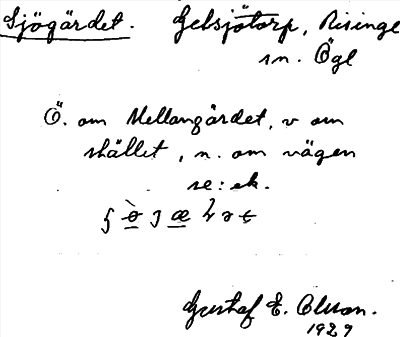 Sjögärdet. Getsjötorp, Risinge
sn. Ögl
Ö. om Mellangärdet, v om
stället, n. om vägen
se: ek.
Gustaf E. Olsson.
1929